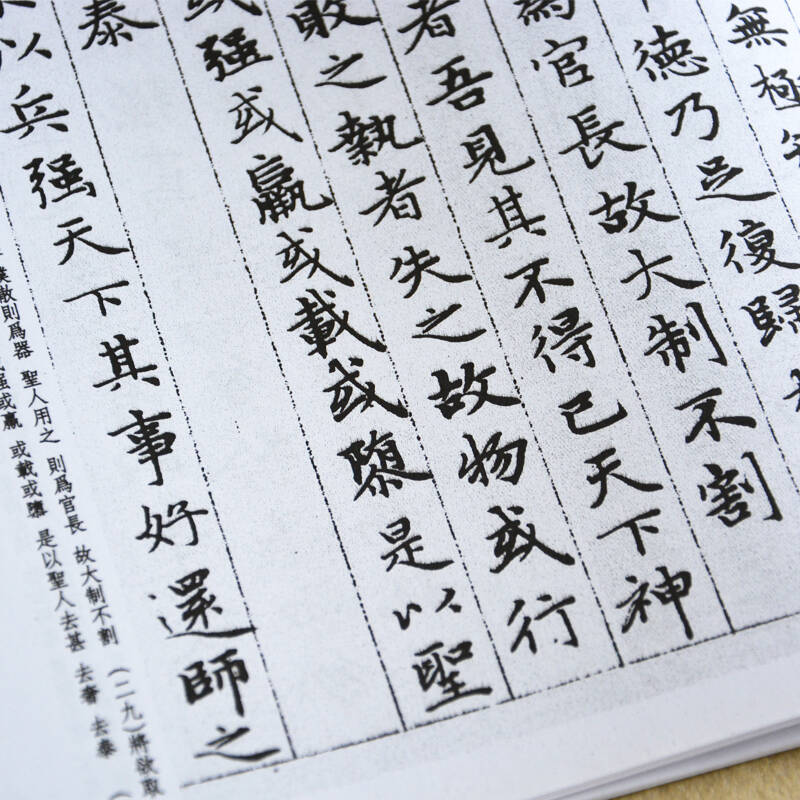 無極
德乃足復歸
為官長故大制不割
者吾見其不得已天下神
敗之執者失之故物或行
或强或羸或載或隳是以聖
泰
以兵强天下其事好還師之
樸散則爲器 聖人用之 則爲官長 故大制不割 (二九)將欲取
强或羸 或載或隳 是以聖人去甚 去奢 去泰